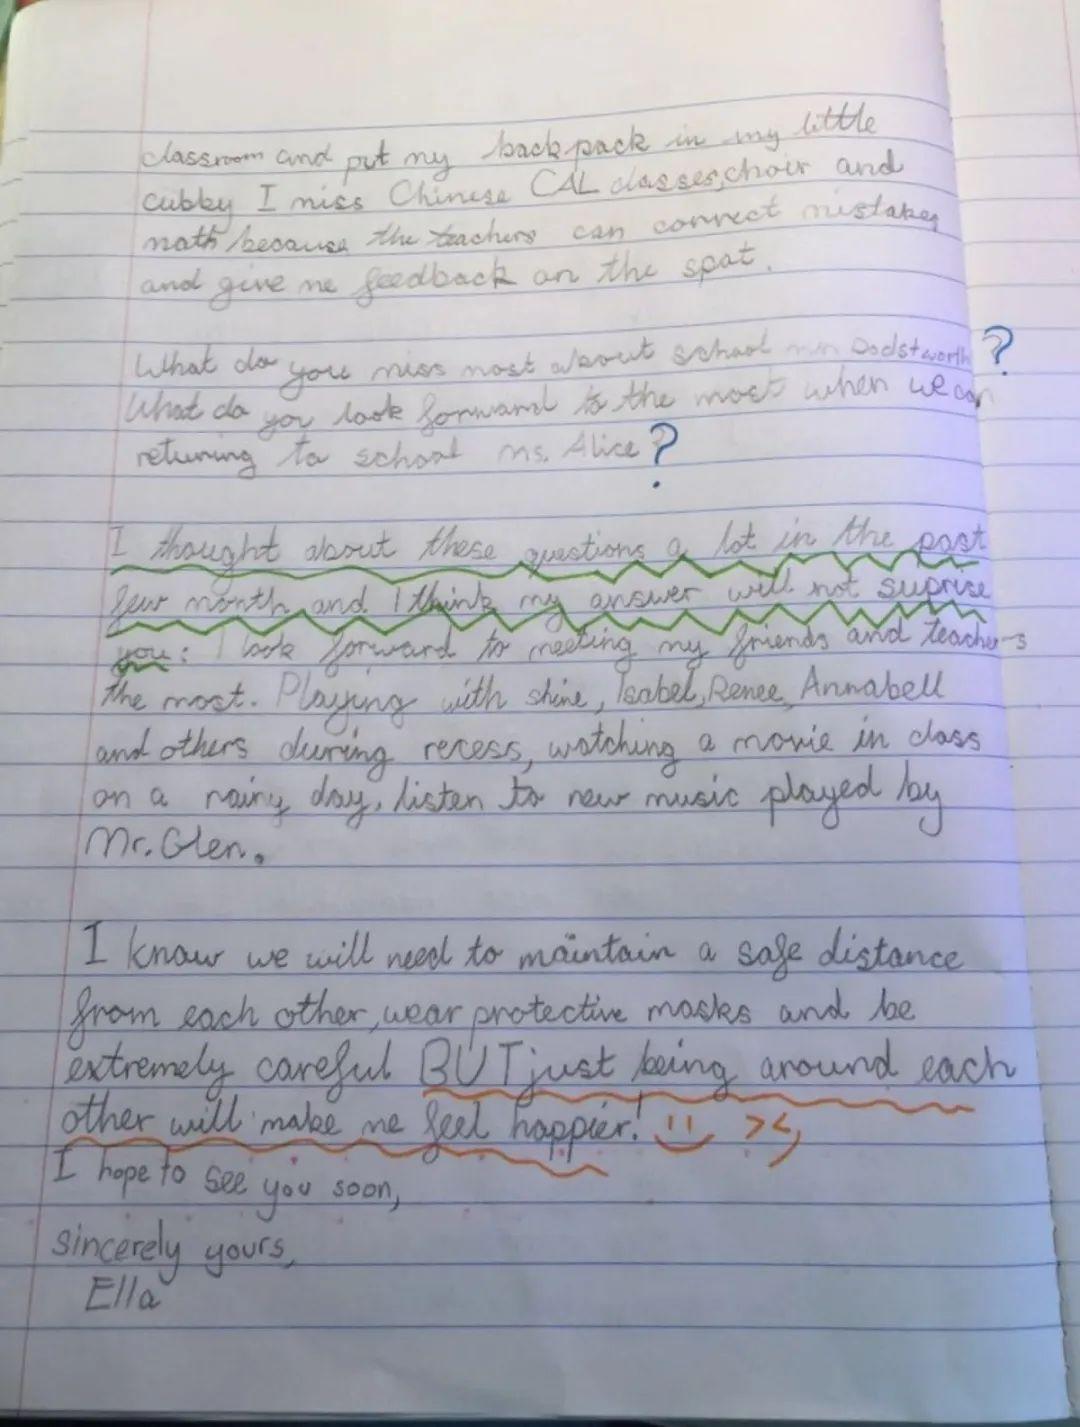 classroom and put my backpack in my little
cubby I miss Chinese CAL classes, choir and
math because the teachers can correct mistakes
and give me feedback on the spot.
What do you miss most about school Dodstworth?
What do you look forward to the most when we can
returning to school ms. Alice?
I thought about these questions a lot in the past
few month and I think my answer will not suprise
you: I look forward to meeting my friends and teachers
the most. Playing with shine, Isabel, Renee, Annabell
and others during recess, watching a movie in class
on a rainy day, listen to new music played by
Mr. Glen.
I know we will need to maintain a safe distance
from each other, wear protective masks and be
extremely careful BUT just being around each
other will make me feel happier!
I hope to see you soon,
sincerely yours,
Ella